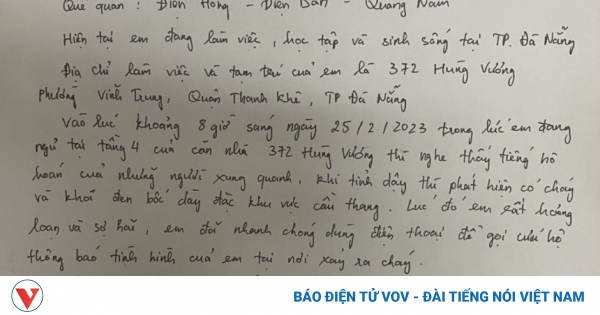 Quê quán : Điện Hồng - Điện Bàn - Quảng Nam
Hiện tại em đang làm việc, học tập và sinh sống tại TP. Đà Nẵng
Địa chỉ làm việc và tạm trú của em là 372 Hùng Vương
phường Vĩnh Trung, Quận Thanh Khê, TP Đà Nẵng
Vào lúc khoảng 8 giờ sáng ngày 25/2/2023 trong lúc em đang
ngủ tại tầng 4 của căn nhà 372 Hùng Vương thì nghe thấy tiếng hô
hoán của những người xung quanh, khi tỉnh dậy thì phát hiện có cháy
và khói đen bốc dày đặc khu vực cầu thang. Lúc đó em rất hoảng
loạn và sợ hãi, em đã nhanh chóng dùng điện thoại để gọi cứu hộ
thông báo tình hình của em tại nơi xảy ra cháy.
V
BÁO ĐIỆN TỬ VOV - ĐÀI TIẾNG NÓI VIỆT NAM